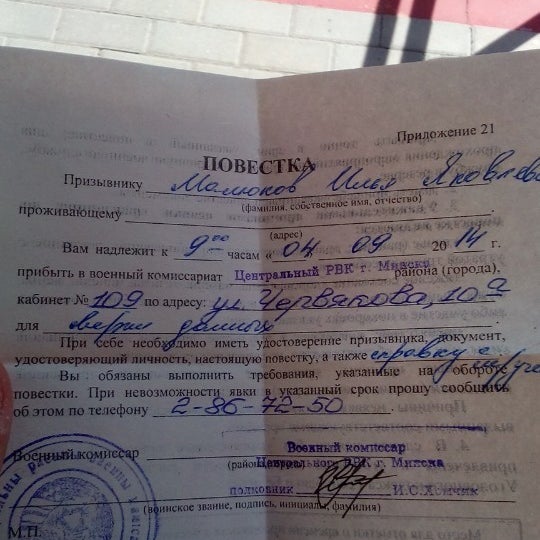 Приложение 21
ПОВЕСТКА
Призывнику Малюков Илья Яковлев
(фамилия, собственное имя, отчество)
проживающему
(адрес)
Вам надлежит к 9 00 часам « 04 09 2014 г.
прибыть в военный комиссариат Центральный РВК г. Минска района (города),
кабинет № 109 по адресу: ул. Червякова, 10
для сверки данных
При себе необходимо иметь удостоверение призывника, документ,
удостоверяющий личность, настоящую повестку, а также справку с
Вы обязаны выполнить требования, указанные на обороте
повестки. При невозможности явки в указанный срок прошу сообщить
об этом по телефону 2-86-72-50
Военный комиссар Военный комиссар
(район Центральный РВК г. Минска
полковник И.С.Хомчик
(воинское звание, подпись, инициалы, фамилия)
М.П.